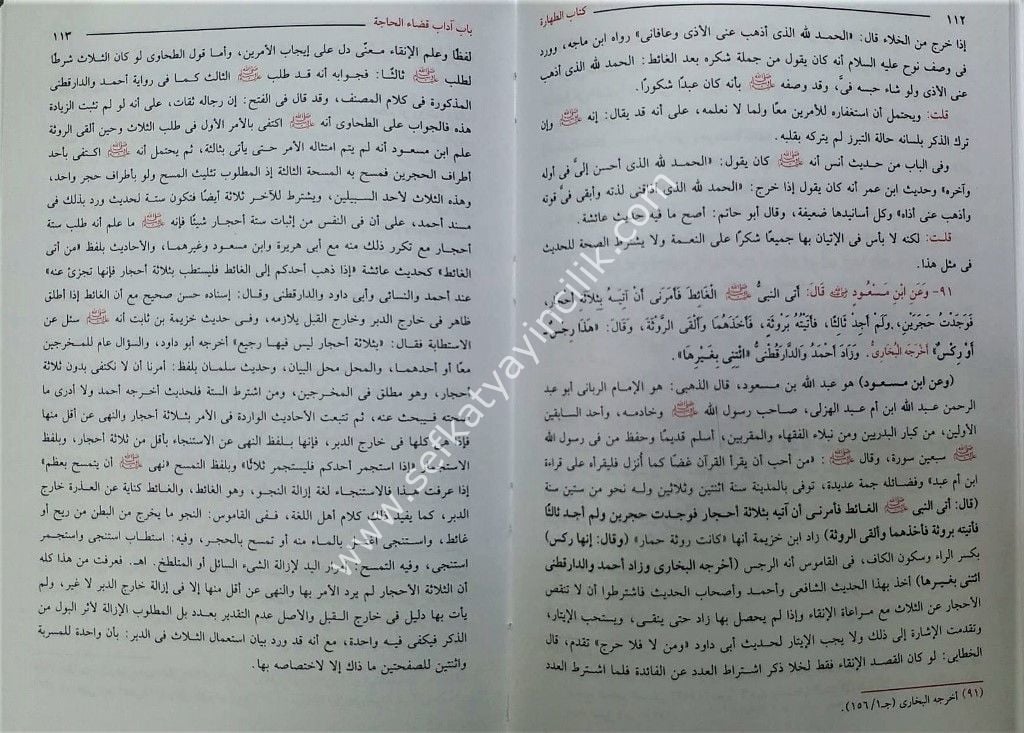 ١١٢
كتاب الطهارة
إذا خرج من الخلاء قال: «الحمد لله الذى أذهب عنى الأذى وعافانى» رواه ابن ماجه، وورد
فى وصف نوح عليه السلام أنه كان يقول من جملة شكره بعد الغائط: الحمد لله الذى أذهب
عنى الأذى ولو شاء حبسه فىَّ، وقد وصفه ﷺ بأنه كان عبدًا شكورًا.
قلت: ويحتمل أن استغفاره للأمرين معًا ولما لا نعلمه، على أنه قد يقال: إنه ﷺ وإن
ترك الذكر بلسانه حالة التبرز لم يتركه بقلبه.
وفى الباب من حديث أنس أنه ﷺ كان يقول: «الحمد لله الذى أحسن إلىَّ فى أوله
وآخره» وحديث ابن عمر أنه كان يقول إذا خرج: «الحمد لله الذى أذاقنى لذته وأبقى فىَّ قوته
وأذهب عنى أذاه» وكل أسانيدها ضعيفة، وقال أبو حاتم: أصح ما فيه حديث عائشة.
قلت: لكنه لا بأس فى الإتيان بها جميعًا شكرًا على النعمة ولا يشترط الصحة للحديث
فى مثل هذا.
٩١- وَعَنِ ابْنِ مَسْعُودٍ رضي الله عنه قَالَ: أَتَى النَّبىُّ ﷺ الْغَائِطَ فَأَمَرَنى أَنْ آتِيَهُ بِثَلَاثَةِ أَحْجَارٍ،
فَوَجَدْتُ حَجَرَيْنِ، وَلَمْ أَجِدْ ثَالثًا، فَأَتَيْتُهُ بِرَوْثَةٍ، فَأَخَذَهُمَا وَأَلْقَى الرَّوْثَةَ، وَقَالَ: «هَذَا رِجْسٌ
أَوْ رِكْسٌ» أَخْرَجَهُ الْبُخَارىُّ. وَزَادَ أَحْمَدُ وَالدَّارقُطْنىُّ «ائْتِنى بِغَيْرِهَا».
(وعن ابن مسعود) هو عبد الله بن مسعود، قال الذهبى: هو الإمام الربانى أبو عبد
الرحمن عبد الله ابن أم عبد الهزلى، صاحب رسول الله ﷺ وخادمه، وأحد السابقين
الأولين، من كبار البدريين ومن نبلاء الفقهاء والمقربين، أسلم قديمًا وحفظ من فى رسول الله
ﷺ سبعين سورة، وقال ﷺ: «من أحب أن يقرأ القرآن غضًا كما أُنزل فليقرأه على قراءة
ابن أم عبد» وفضائله جمة عديدة، توفى بالمدينة سنة اثنتين وثلاثين وله نحو من ستين سنة
(قال: أتى النبى ﷺ الغائط فأمرنى أن آتيه بثلاثة أحجار فوجدت حجرين ولم أجد ثالثًا
فأتيته بروثة فأخذهما وألقى الروثة) زاد ابن خزيمة أنها «كانت روثة حمار» (وقال: إنها ركس)
بكسر الراء وسكون الكاف، فى القاموس أنه الرجس (أخرجه البخارى وزاد أحمد والدارقطنى
ائتنى بغيرها) أخذ بهذا الحديث الشافعى وأحمد وأصحاب الحديث فاشترطوا أن لا تنقص
الأحجار عن الثلاث مع مراعاة الإنقاء وإذا لم يحصل بها زاد حتى ينقى، ويستحب الإيتار،
وتقدمت الإشارة إلى ذلك ولا يجب الإيتار لحديث أبى داود «ومن لا فلا حرج» تقدم، قال
الخطابى: لو كان القصد الإنقاء فقط لخلا ذكر اشتراط العدد عن الفائدة فلما اشترط العدد
(٩١) أخرجه البخارى (جـ١٥٦/١).
باب آداب قضاء الحاجة
١١٣
لفظًا وعلم الإنقاء معنًى دل على إيجاب الأمرين، وأما قول الطحاوى لو كان الثلاث شرطًا
لطلب ﷺ ثالثًا: فجوابه أنه قد طلب ﷺ الثالث كما فى رواية أحمد والدارقطنى
المذكورة فى كلام المصنف، وقد قال فى الفتح: إن رجاله ثقات، على أنه لو لم تثبت الزيادة
هذه فالجواب على الطحاوى أنه ﷺ اكتفى بالأمر الأول فى طلب الثلاث وحين ألقى الروثة
علم ابن مسعود أنه لم يتم امتثاله الأمر حتى يأتى بثالثة، ثم يحتمل أنه ﷺ اكتفى بأحد
أطراف الحجرين فمسح به المسحة الثالثة إذ المطلوب تثليث المسح ولو بأطراف حجر واحد،
وهذه الثلاث لأحد السبيلين، ويشترط للآخر ثلاثة أيضًا فتكون ستة لحديث ورد بذلك فى
مسند أحمد، على أن فى النفس من إثبات ستة أحجار شيئًا فإنه ﷺ ما علم أنه طلب ستة
أحجار مع تكرر ذلك منه مع أبى هريرة وابن مسعود وغيرهما، والأحاديث بلفظ «من أتى
الغائط» كحديث عائشة «إذا ذهب أحدكم إلى الغائط فليستطب بثلاثة أحجار فإنها تجزئ عنه»
عند أحمد والنسائى وأبى داود والدارقطنى وقال: إسناده حسن صحيح مع أن الغائط إذا أطلق
ظاهر فى خارج الدبر وخارج القبل يلازمه، وفى حديث خزيمة بن ثابت أنه ﷺ سئل عن
الاستطابة فقال: «بثلاثة أحجار ليس فيها رجيع» أخرجه أبو داود، والسؤال عام للمخرجين
معًا أو أحدهما، والمحل محل البيان، وحديث سلمان بلفظ: أمرنا أن لا نكتفى بدون ثلاثة
أحجار، وهو مطلق فى المخرجين، ومن اشترط الستة فلحديث أخرجه أحمد ولا أدرى ما
صحته فيبحث عنه، ثم تتبعت الأحاديث الواردة فى الأمر بثلاثة أحجار والنهى عن أقل منها
فإذا هى كلها فى خارج الدبر، فإنها بلفظ النهى عن الاستنجاء بأقل من ثلاثة أحجار، وبلفظ
الاستجمار «إذا استجمر أحدكم فليستجمر ثلاثًا» وبلفظ التمسح «نهى ﷺ أن يتمسح بعظم»
إذا عرفت هذا فالاستنجاء لغة إزالة النجو، وهو الغائط، والغائط كناية عن العذرة خارج
الدبر، كما يفيد ذلك كلام أهل اللغة، ففى القاموس: النجو ما يخرج من البطن من ريح أو
غائط، واستنجى اغتسل بالماء منه أو تمسح بالحجر، وفيه: استطاب استنجى واستنجمر
استنجى، وفيه التمسح إمرار اليد لإزالة الشىء السائل أو المتلطخ. اهـ. فعرفت من هذا كله
أن الثلاثة الأحجار لم يرد الأمر بها والنهى عن أقل منها إلا فى إزالة خارج الدبر لا غير، ولم
يأت بها دليل فى خارج القبل والأصل عدم التقدير بعدد بل المطلوب الإزالة لأثر البول من
الذكر فيكفى فيه واحدة، مع أنه قد ورد بيان استعمال الثلاث فى الدبر: بأن واحدة للمسربة
واثنتين للصفحتين ما ذاك إلا لاختصاصه بها.
www.sefkatyayincilik.com